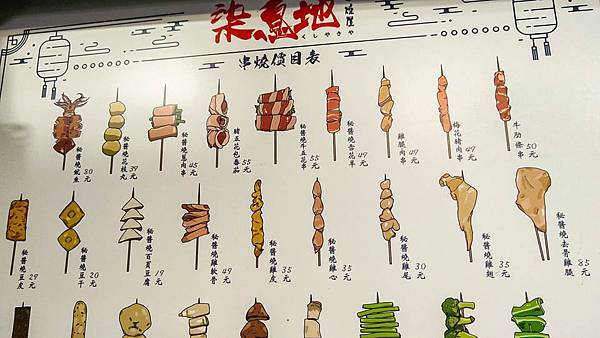 柒息地
短屋
くしやきや
串燒價目表
秘醬燒魷魚 80元
秘醬燒花枝丸 39元
秘醬燒蔥肉串 45元
豬五花包番茄 55元
秘醬燒牛五花串 55元
秘醬燒雪花羊 49元
雞腿肉串 49元
梅花豬肉串 49元
牛肋條串 50元
秘醬燒豆皮 29元
秘醬燒豆干 20元
秘醬燒百頁豆腐 19元
秘醬燒雞軟骨 49元
秘醬燒雞皮 35元
秘醬燒雞心 35元
秘醬燒雞尾 30元
秘醬燒雞翅 35元
秘醬燒去骨雞腿 85元